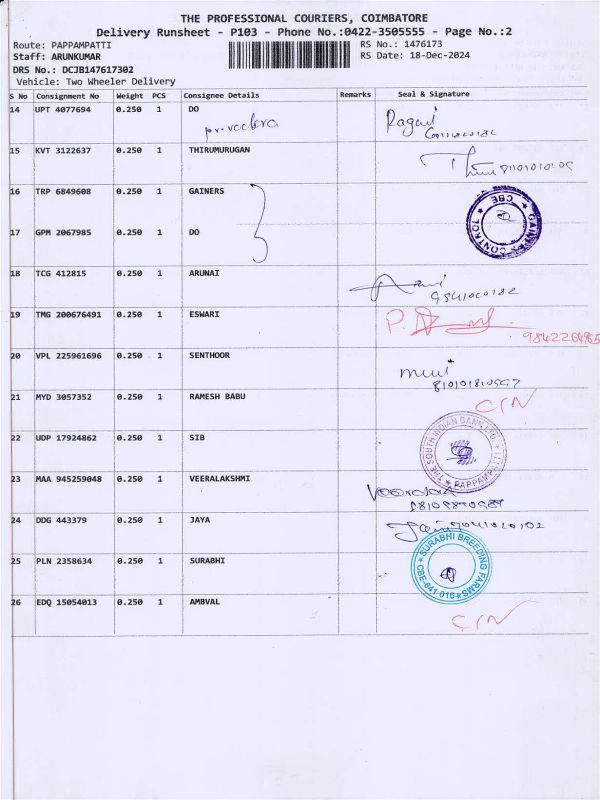 THE PROFESSIONAL COURIERS, COIMBATORE
Delivery Runsheet - P103 - Phone No.:0422-3505555 - Page No.:2
Route: PAPPAMPATTI RS No.: 1476173
Staff: ARUNKUMAR RS Date: 18-Dec-2024
DRS No.: DCJB147617302
Vehicle: Two Wheeler Delivery
S No Consignment No Weight PCS Consignee Details Remarks Seal & Signature
14 UPT 4077694 0.250 1 DO
15 KVT 3122637 0.250 1 THIRUMURUGAN
16 TRP 6849608 0.250 1 GAINERS
17 GPM 2067985 0.250 1 DO
18 TCG 412815 0.250 1 ARUNAI
19 TMG 200676491 0.250 1 ESWARI
20 VPL 225961696 0.250 1 SENTHOOR
21 MYD 3057352 0.250 1 RAMESH BABU
C/N
22 UDP 17924862 0.250 1 SIB
THE SOUTH INDIAN BANK LTD.
23 MAA 945259048 0.250 1 VEERALAKSHMI
24 DDG 443379 0.250 1 JAYA
25 PLN 2358634 0.250 1 SURABHI
SURABHI BREEDING FARMS
CBE-641 016
26 EDQ 15054013 0.250 1 AMBVAL
C/N